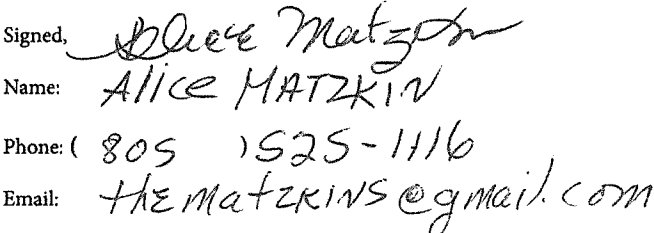 Signed, Alice Matzkin
Name: Alice MATZKIN
Phone: ( 805 ) 525-1116
Email: thematzkins@gmail.com